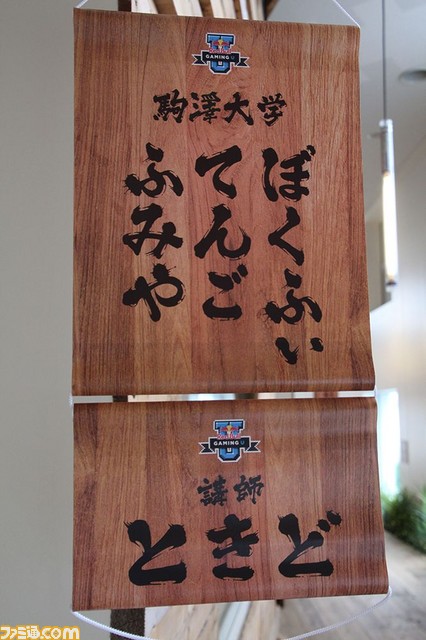 GAMING U
駒澤大学
ぼくふぃ
てんご
ふみや
GAMING U
講師
ときど
ファミ通.com